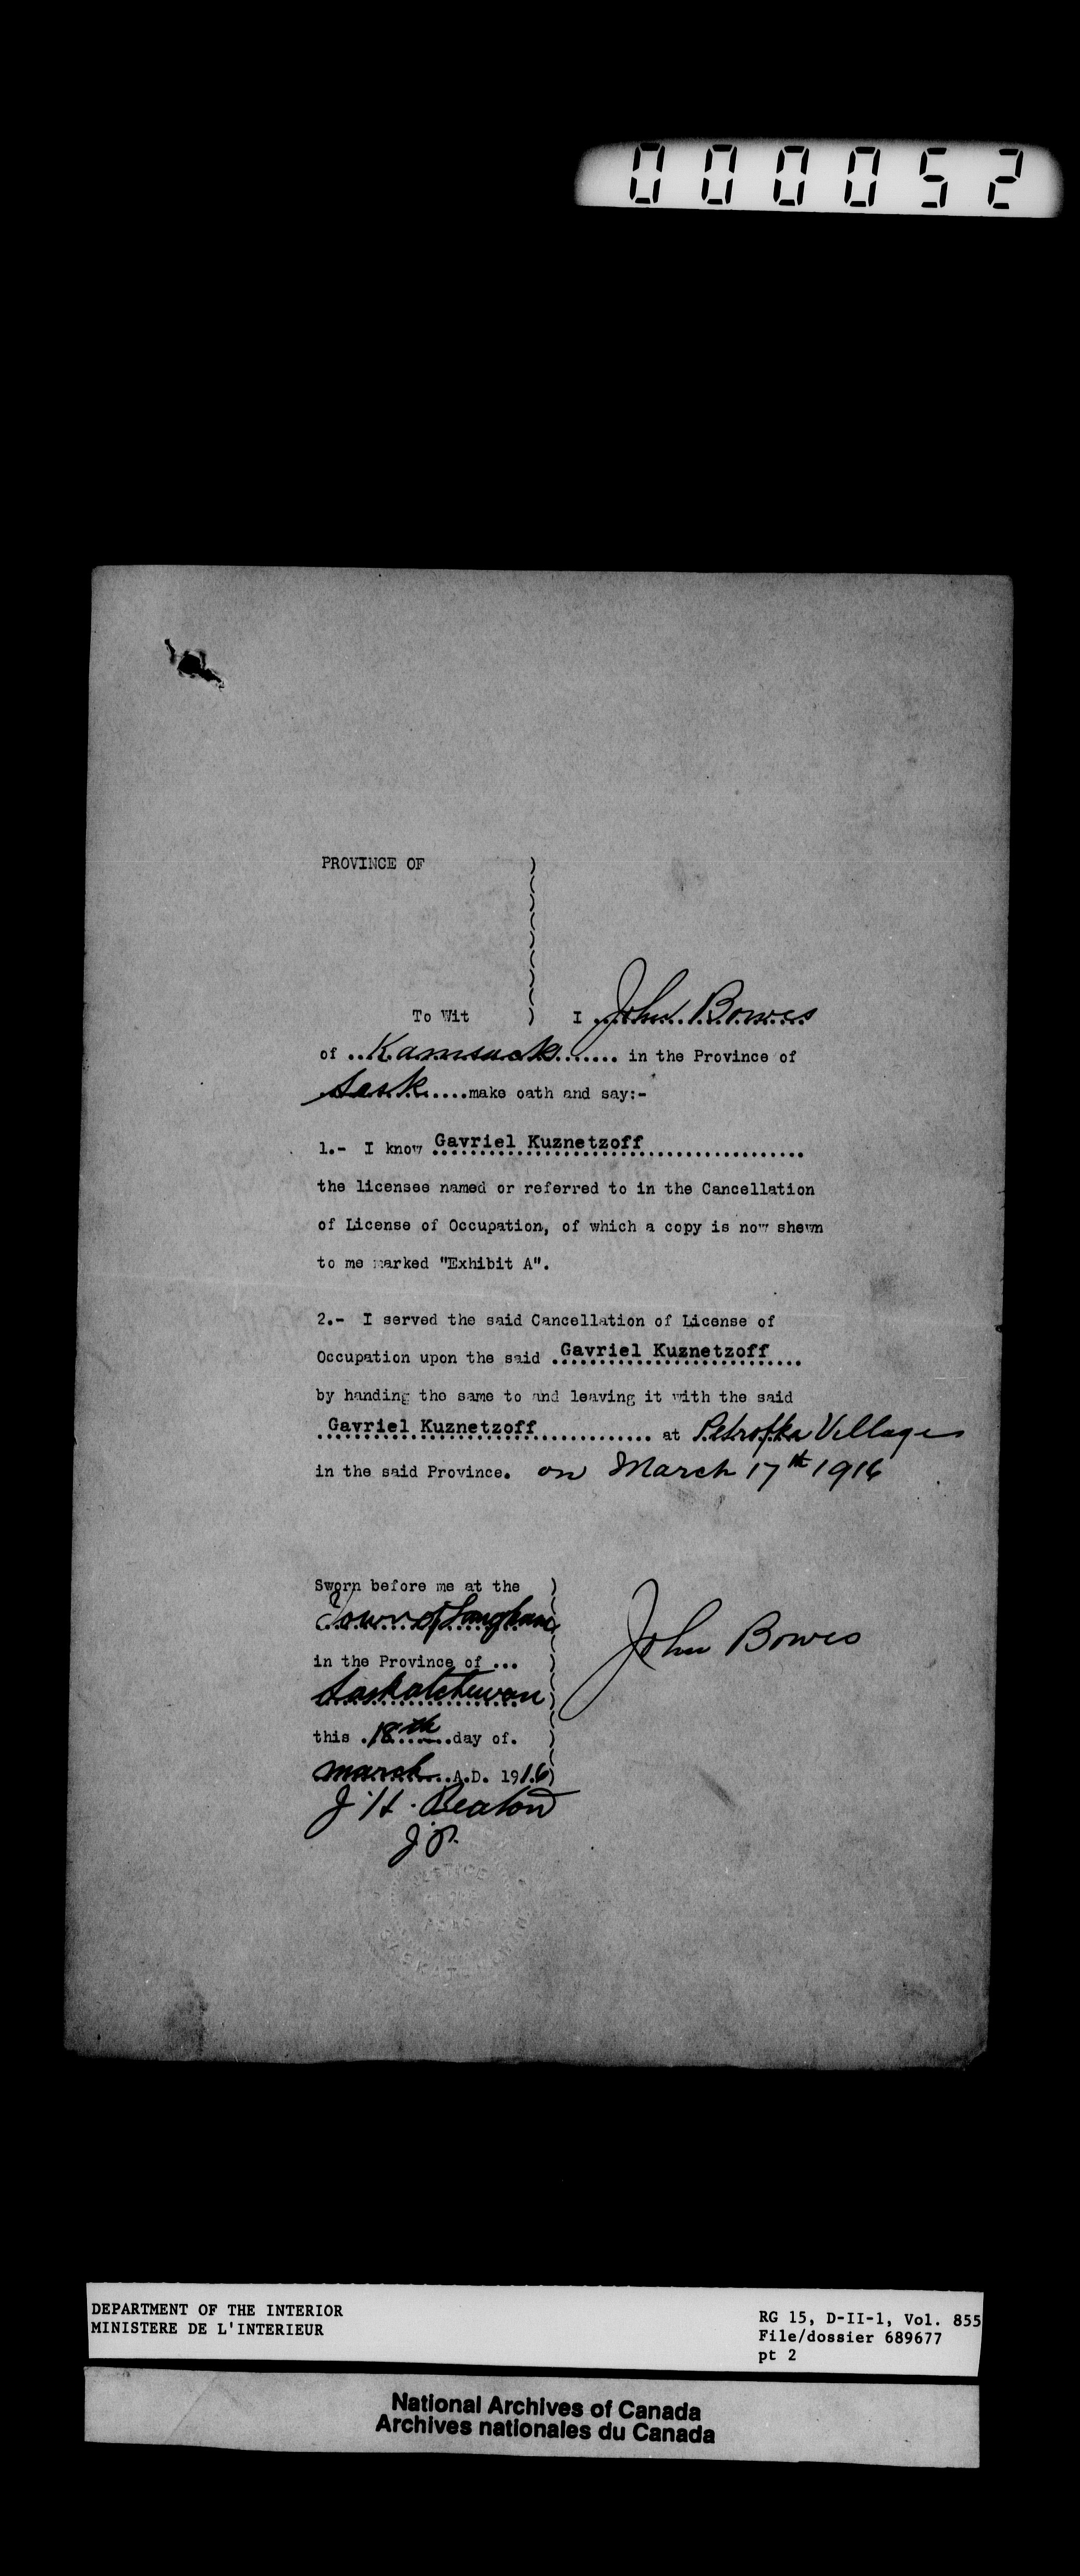 000052
PROVINCE OF
To Wit I John Bowes
of ..Kamsack....... in the Province of
Sask.....make oath and say:-
1.- I know Gavriel Kuznetzoff
the licensee named or referred to in the Cancellation
of License of Occupation, of which a copy is now shewn
to me marked "Exhibit A".
2.- I served the said Cancellation of License of
Occupation upon the said Gavriel Kuznetzoff
by handing the same to and leaving it with the said
Gavriel Kuznetzoff at Petrofka Village
in the said Province. on March 17th 1916
Sworn before me at the
Town of Langham
in the Province of ...
Saskatchewan
this .18th...day of.
march...A.D. 1916
John Bowes
J. H. Beaton
J.P.
JUSTICE
OF THE
PEACE
SASKATCHEWAN
DEPARTMENT OF THE INTERIOR
MINISTERE DE L'INTERIEUR
RG 15, D-II-1, Vol. 855
File/dossier 689677
pt 2
National Archives of Canada
Archives nationales du Canada